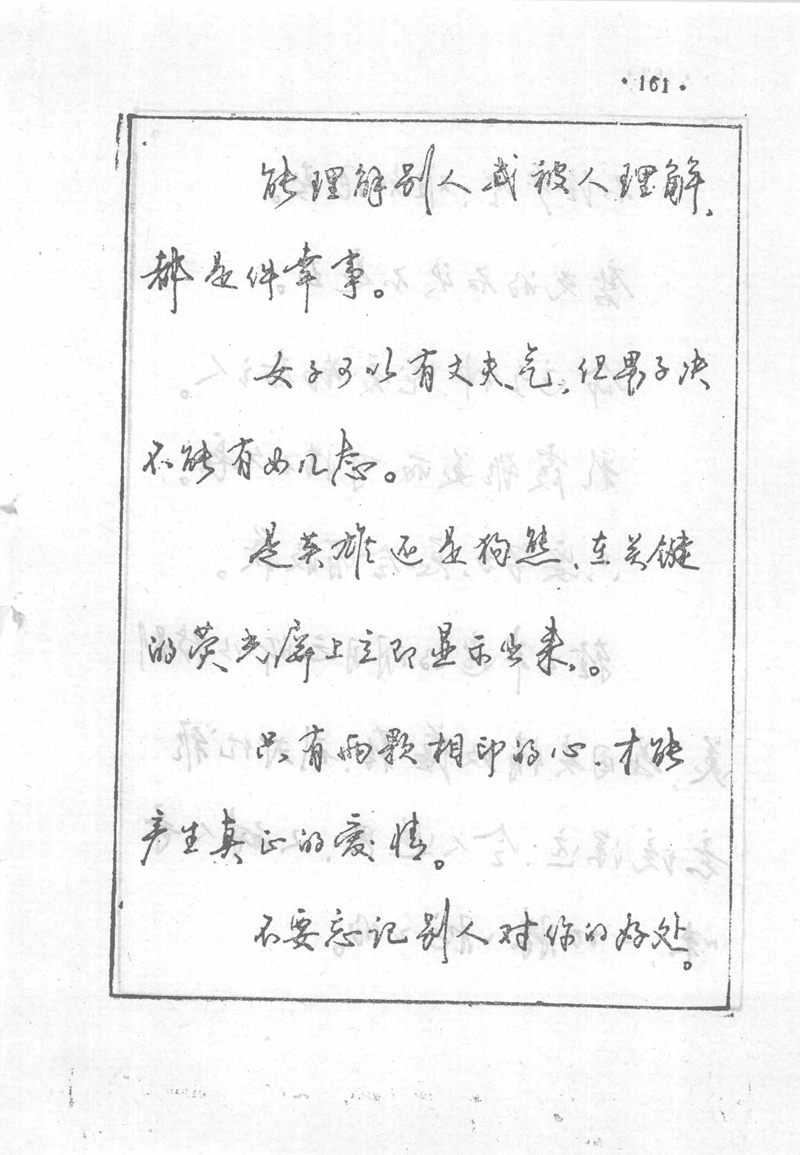 ·161·
能理解别人或被人理解、
都是件幸事。
女子可以有丈夫气，但男子决
不能有女儿态。
是英雄还是狗熊、在关键
的荧光屏上立即显示出来。
只有两颗相印的心、才能
产生真正的爱情。
不要忘记别人对你的好处。